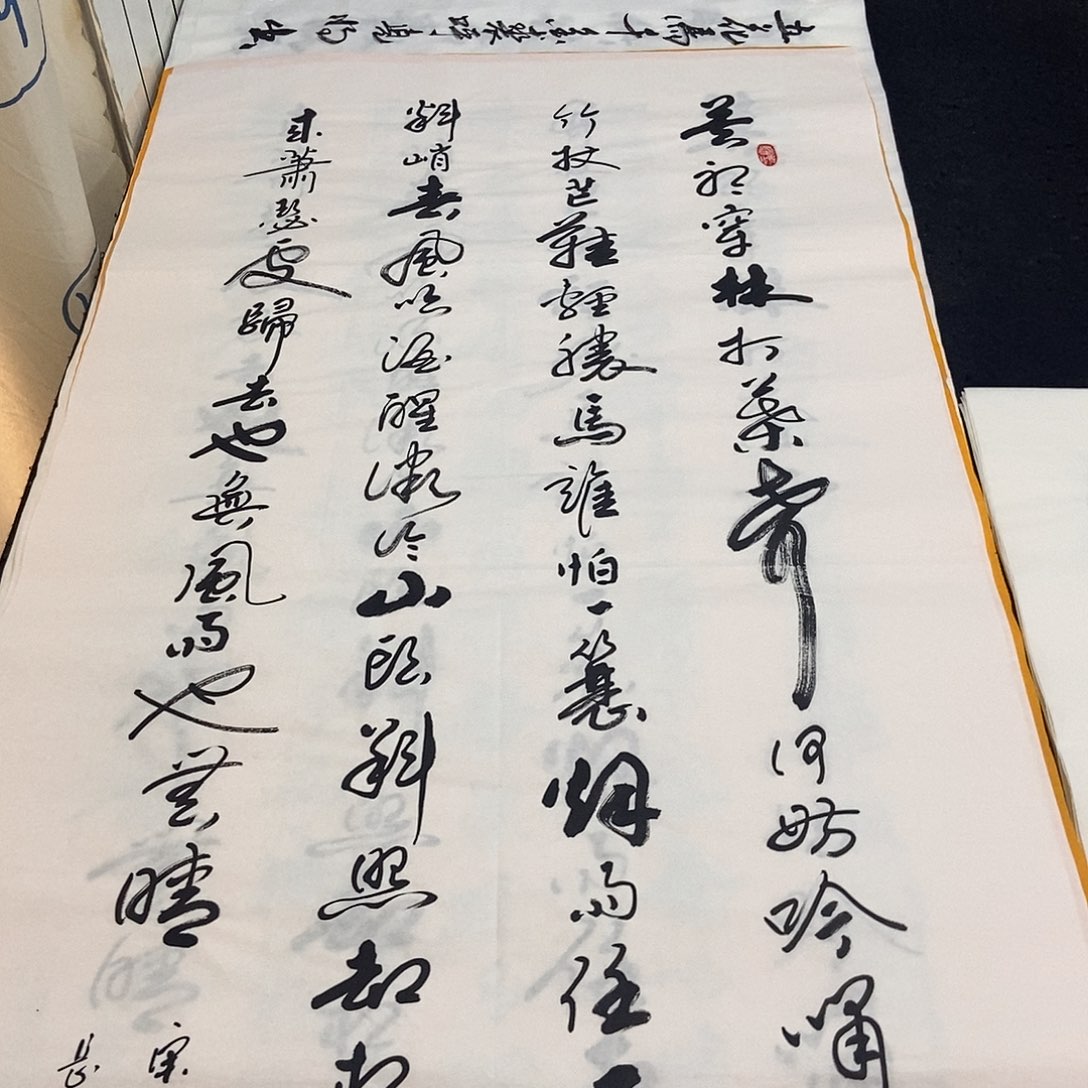 莫聽穿林打葉聲何妨吟嘯
竹杖芒鞋輕勝馬誰怕一蓑烟雨任
料峭春風吹酒醒微冷山頭斜照却相
來蕭瑟處歸去也無風雨也無晴
宋